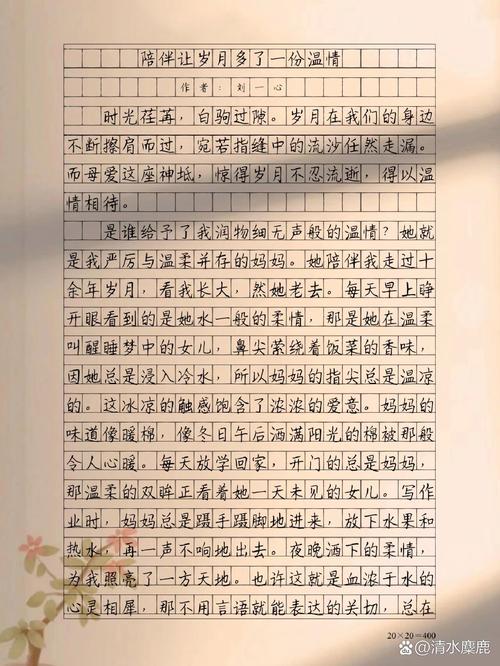 陪伴让岁月多了一份温情
作者：刘一心
时光荏苒，白驹过隙。岁月在我们的身边
不断擦肩而过，宛若指缝中的流沙任然走漏。
而母爱这座神坻，惊得岁月不忍流逝，得以温
情相待。
是谁给予了我润物细无声般的温情？她就
是我严厉与温柔并存的妈妈。她陪伴我走过十
余年岁月，看我长大，然她老去。每天早上睁
开眼看到的是她水一般的柔情，那是她在温柔
叫醒睡梦中的女儿，鼻尖萦绕着饭菜的香味，
因她总是浸入冷水，所以妈妈的指尖总是温凉
的。这冰凉的触感饱含了浓浓的爱意。妈妈的
味道像暖棉，像冬日午后洒满阳光的棉被那般
令人心暖。每天放学回家，开门的总是妈妈，
那温柔的双眸正看着她一天未见的女儿。写作
业时，妈妈总是蹑手蹑脚地进来，放下水果和
热水，再一声不响地出去。夜晚洒下的柔情，
为我照亮了一方天地。也许这就是血浓于水的
心灵相犀，那不用言语就能表达的关切，总在
20×20=400
清水麋鹿